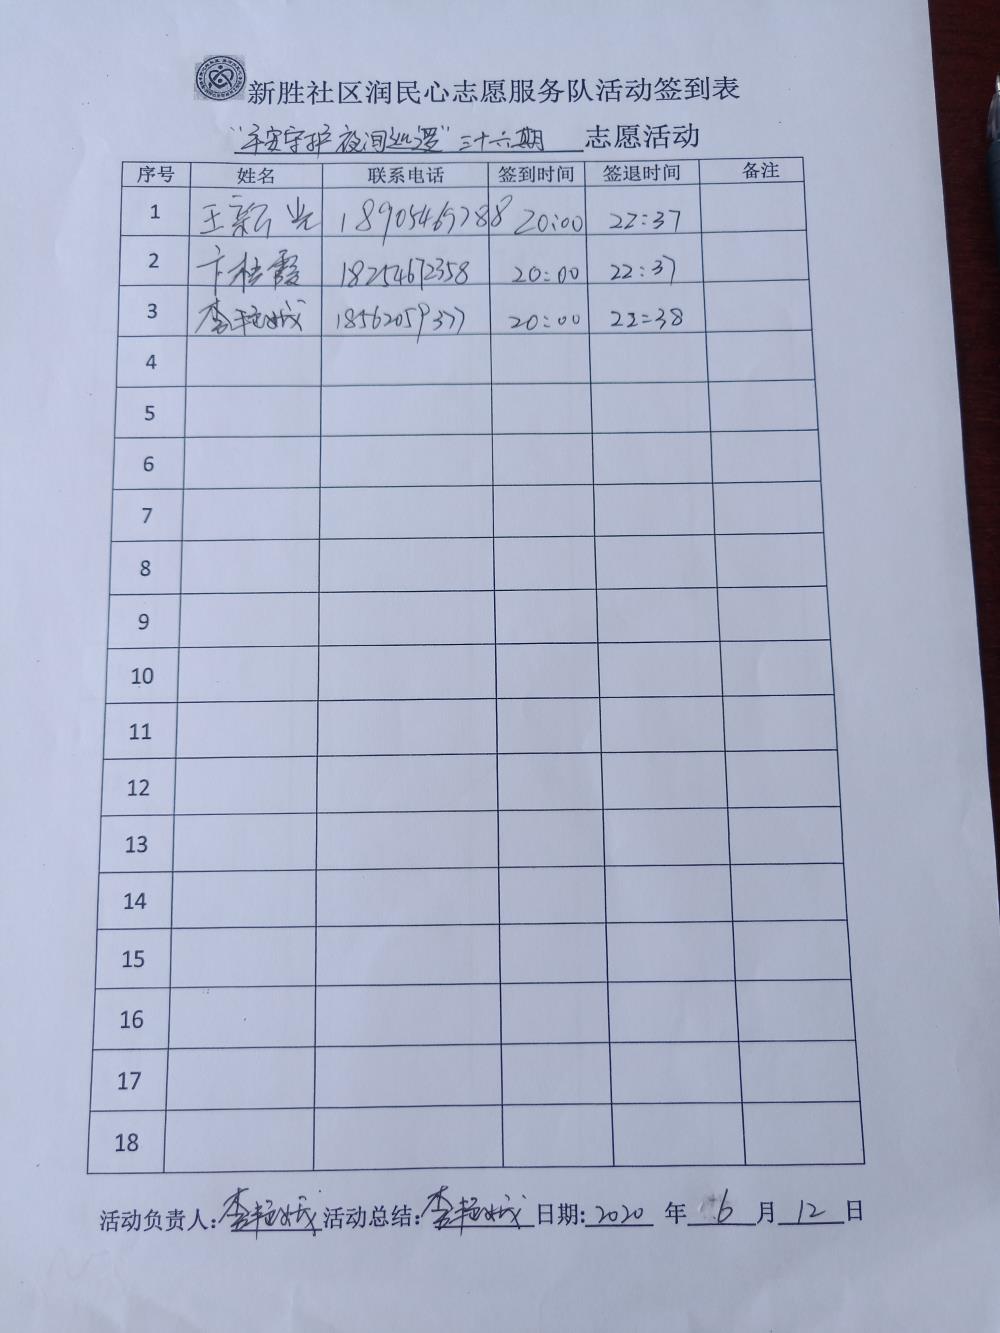 新胜社区润民心志愿服务队活动签到表
“平安守护夜间巡逻”三十六期 志愿活动
序号 姓名 联系电话 签到时间 签退时间 备注
1 王新光 18905469788 20:00 22:37
2 卞桂霞 18254672358 20:00 22:37
3 李艳城 18562059377 20:00 22:38
4
5
6
7
8
9
10
11
12
13
14
15
16
17
18
活动负责人:李艳城 活动总结:李艳城 日期:2020 年 6 月 12 日